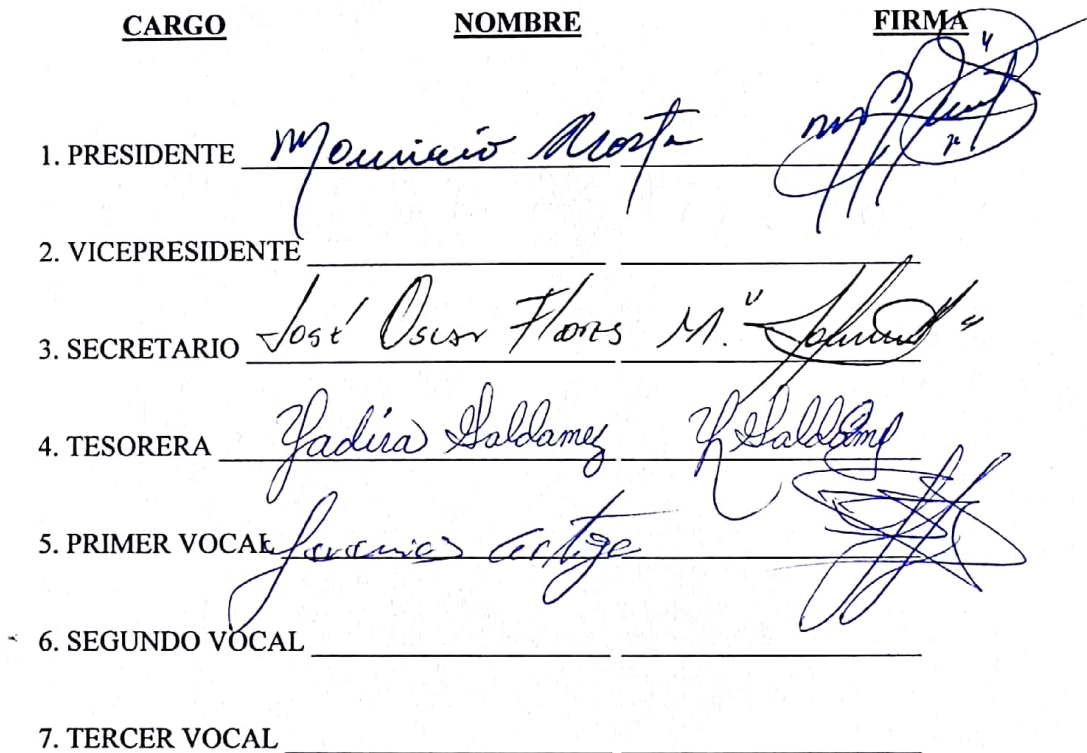 CARGO NOMBRE FIRMA
1. PRESIDENTE Mauricio Acosta
2. VICEPRESIDENTE
3. SECRETARIO José Oscar Flores M.
4. TESORERA Yadira Saldamez Y Saldame
5. PRIMER VOCAL Artiga
6. SEGUNDO VOCAL
7. TERCER VOCAL